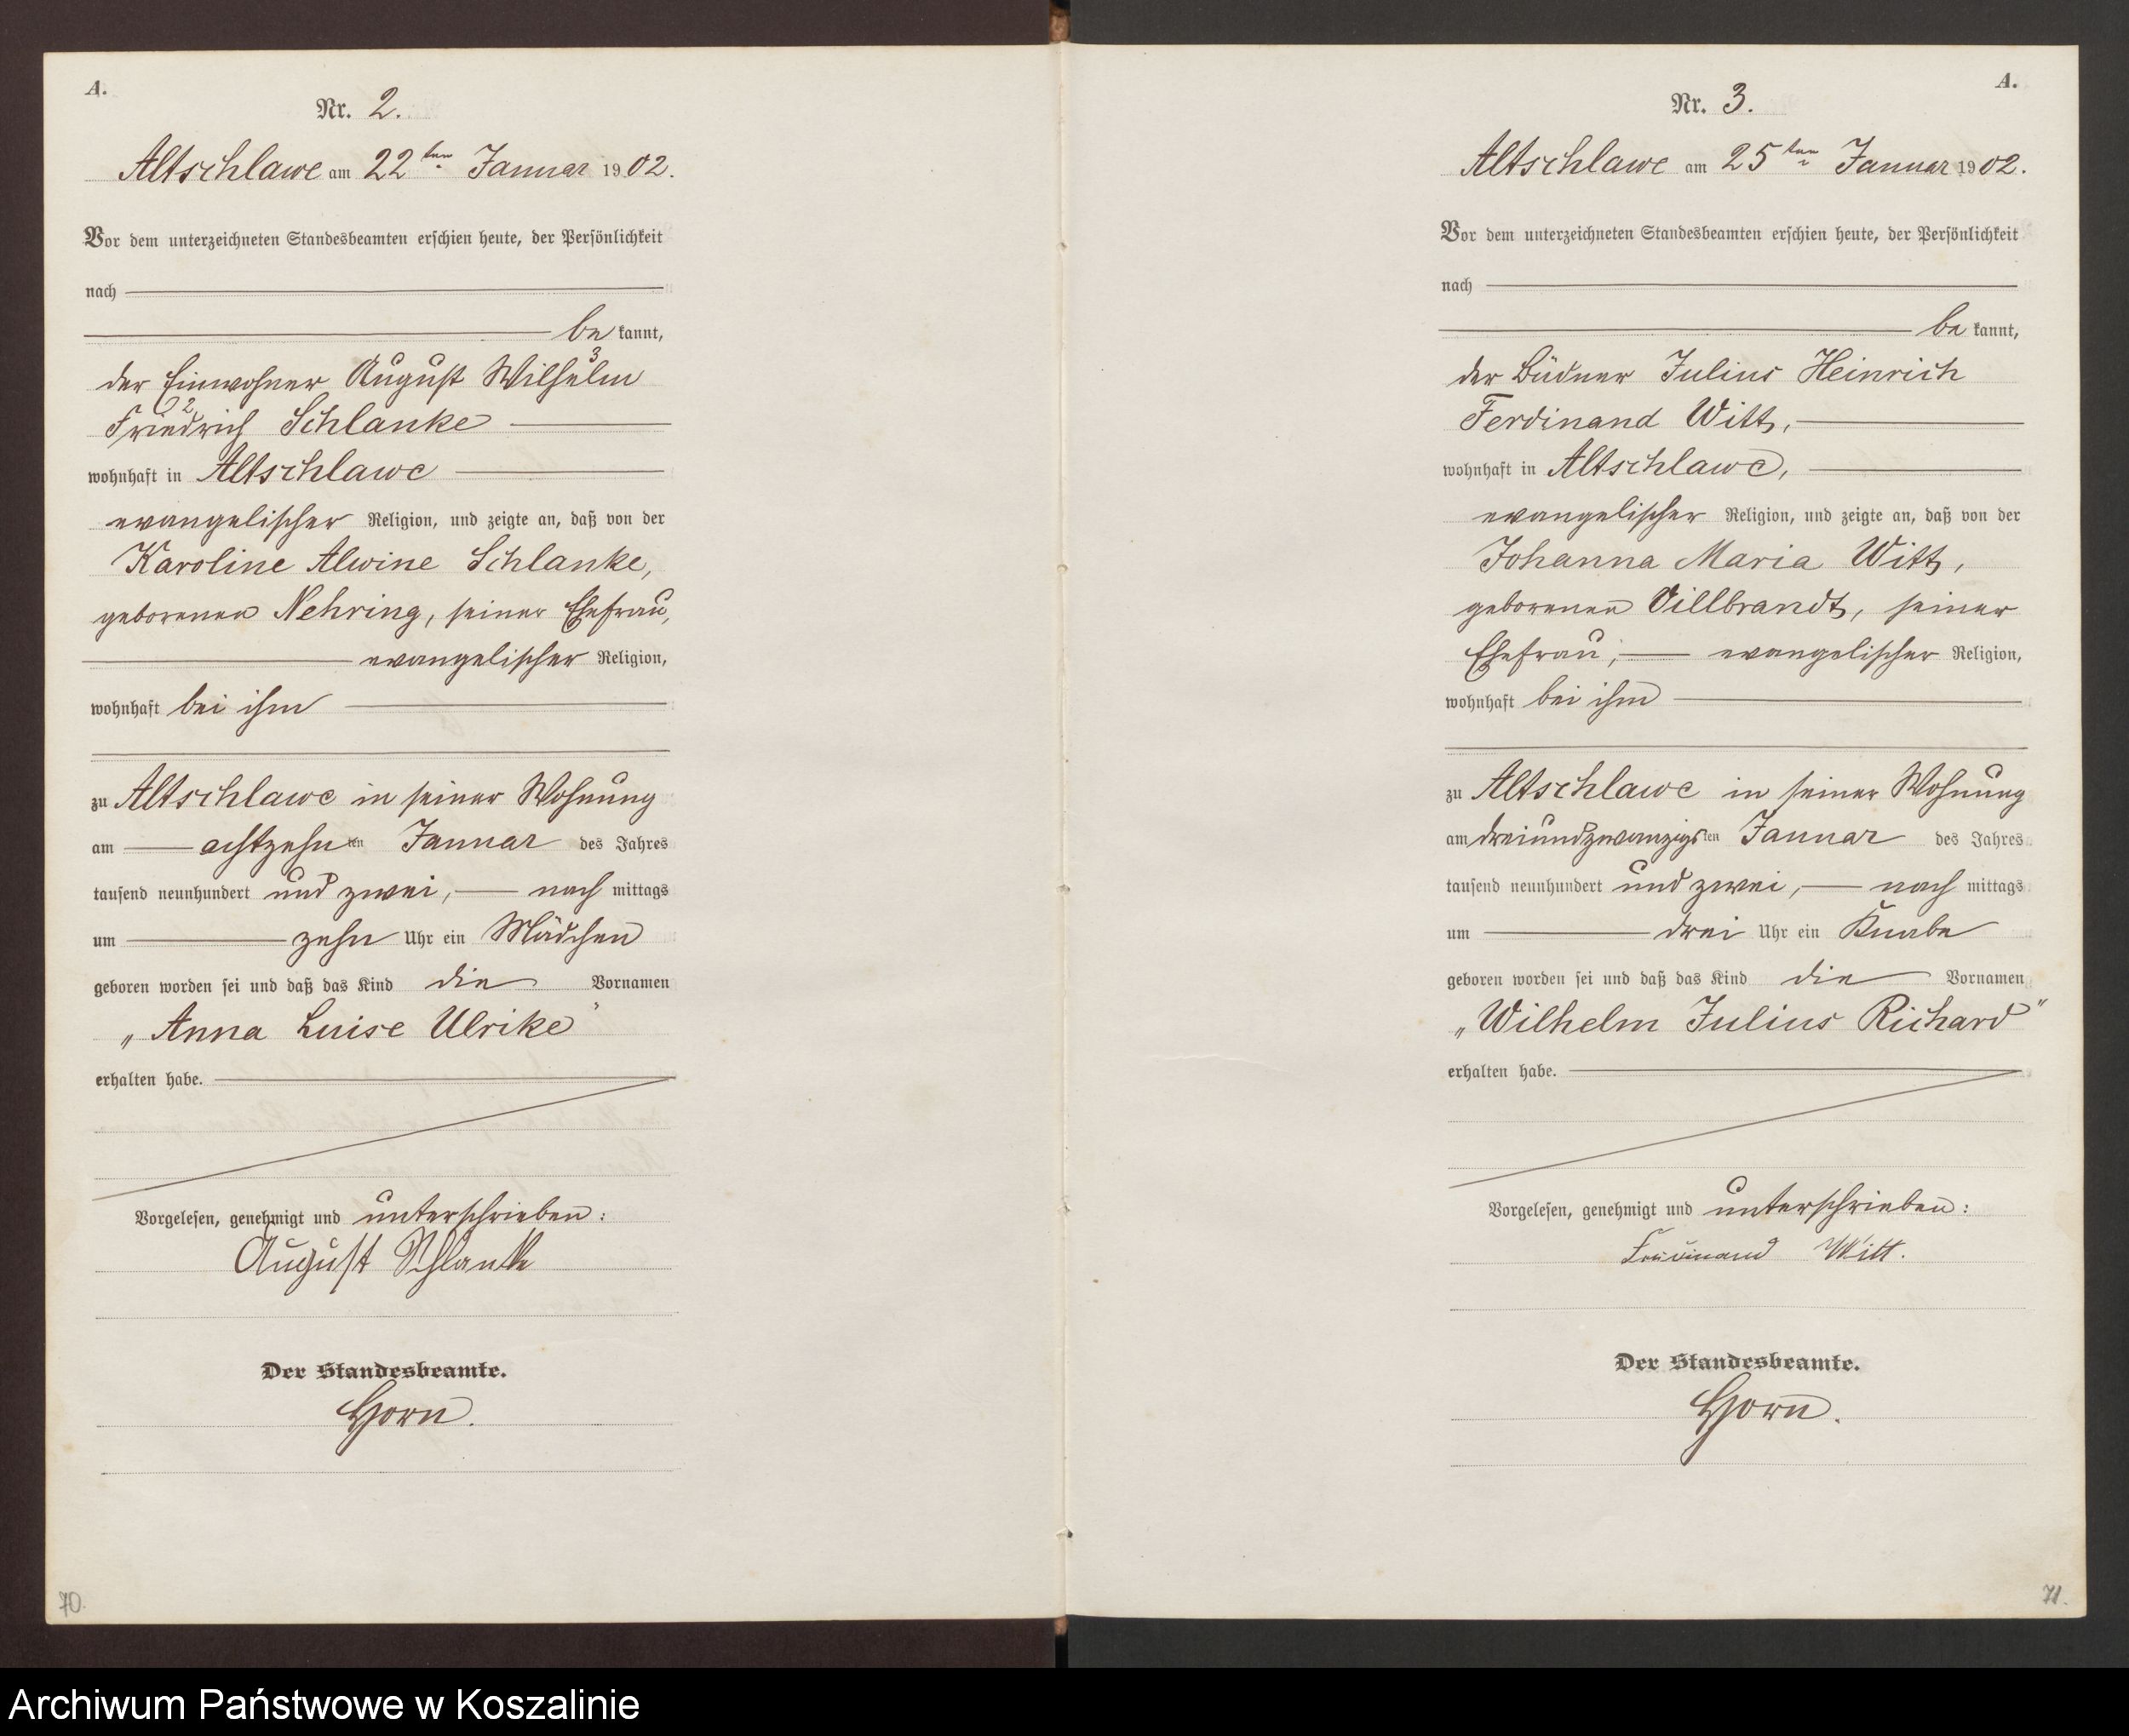 A.
Nr. 2.
Altschlawe am 22ten Januar 1902.
Vor dem unterzeichneten Standesbeamten erschien heute, der Persönlichkeit
nach
be kannt,
der Einwohner August Wilhelm 3
Friedrich 2 Schlanke
wohnhaft in Altschlawe
evangelischer Religion, und zeigte an, daß von der
Karoline Alwine Schlanke,
geborenen Nehring, seiner Ehefrau,
evangelischer Religion,
wohnhaft bei ihm
zu Altschlawe in seiner Wohnung
am achtzehnten Januar des Jahres
tausend neunhundert und zwei, nach mittags
um zehn Uhr ein Mädchen
geboren worden sei und daß das Kind die Vornamen
„Anna Luise Ulrike"
erhalten habe.
Vorgelesen, genehmigt und unterschrieben:
August Schlanke
Der Standesbeamte.
Horn.
70.
A.
Nr. 3.
Altschlawe am 25ten Januar 1902.
Vor dem unterzeichneten Standesbeamten erschien heute, der Persönlichkeit
nach
be kannt,
der Büdner Julius Heinrich
Ferdinand Witt,
wohnhaft in Altschlawe,
evangelischer Religion, und zeigte an, daß von der
Johanna Maria Witt,
geborenen Villbrandt, seiner
Ehefrau, evangelischer Religion,
wohnhaft bei ihm
zu Altschlawe in seiner Wohnung
am dreiundzwanzigsten Januar des Jahres
tausend neunhundert und zwei, nach mittags
um drei Uhr ein Knabe
geboren worden sei und daß das Kind die Vornamen
„Wilhelm Julius Richard"
erhalten habe.
Vorgelesen, genehmigt und unterschrieben:
Ferdinand Witt.
Der Standesbeamte.
Horn.
71.
Archiwum Państwowe w Koszalinie